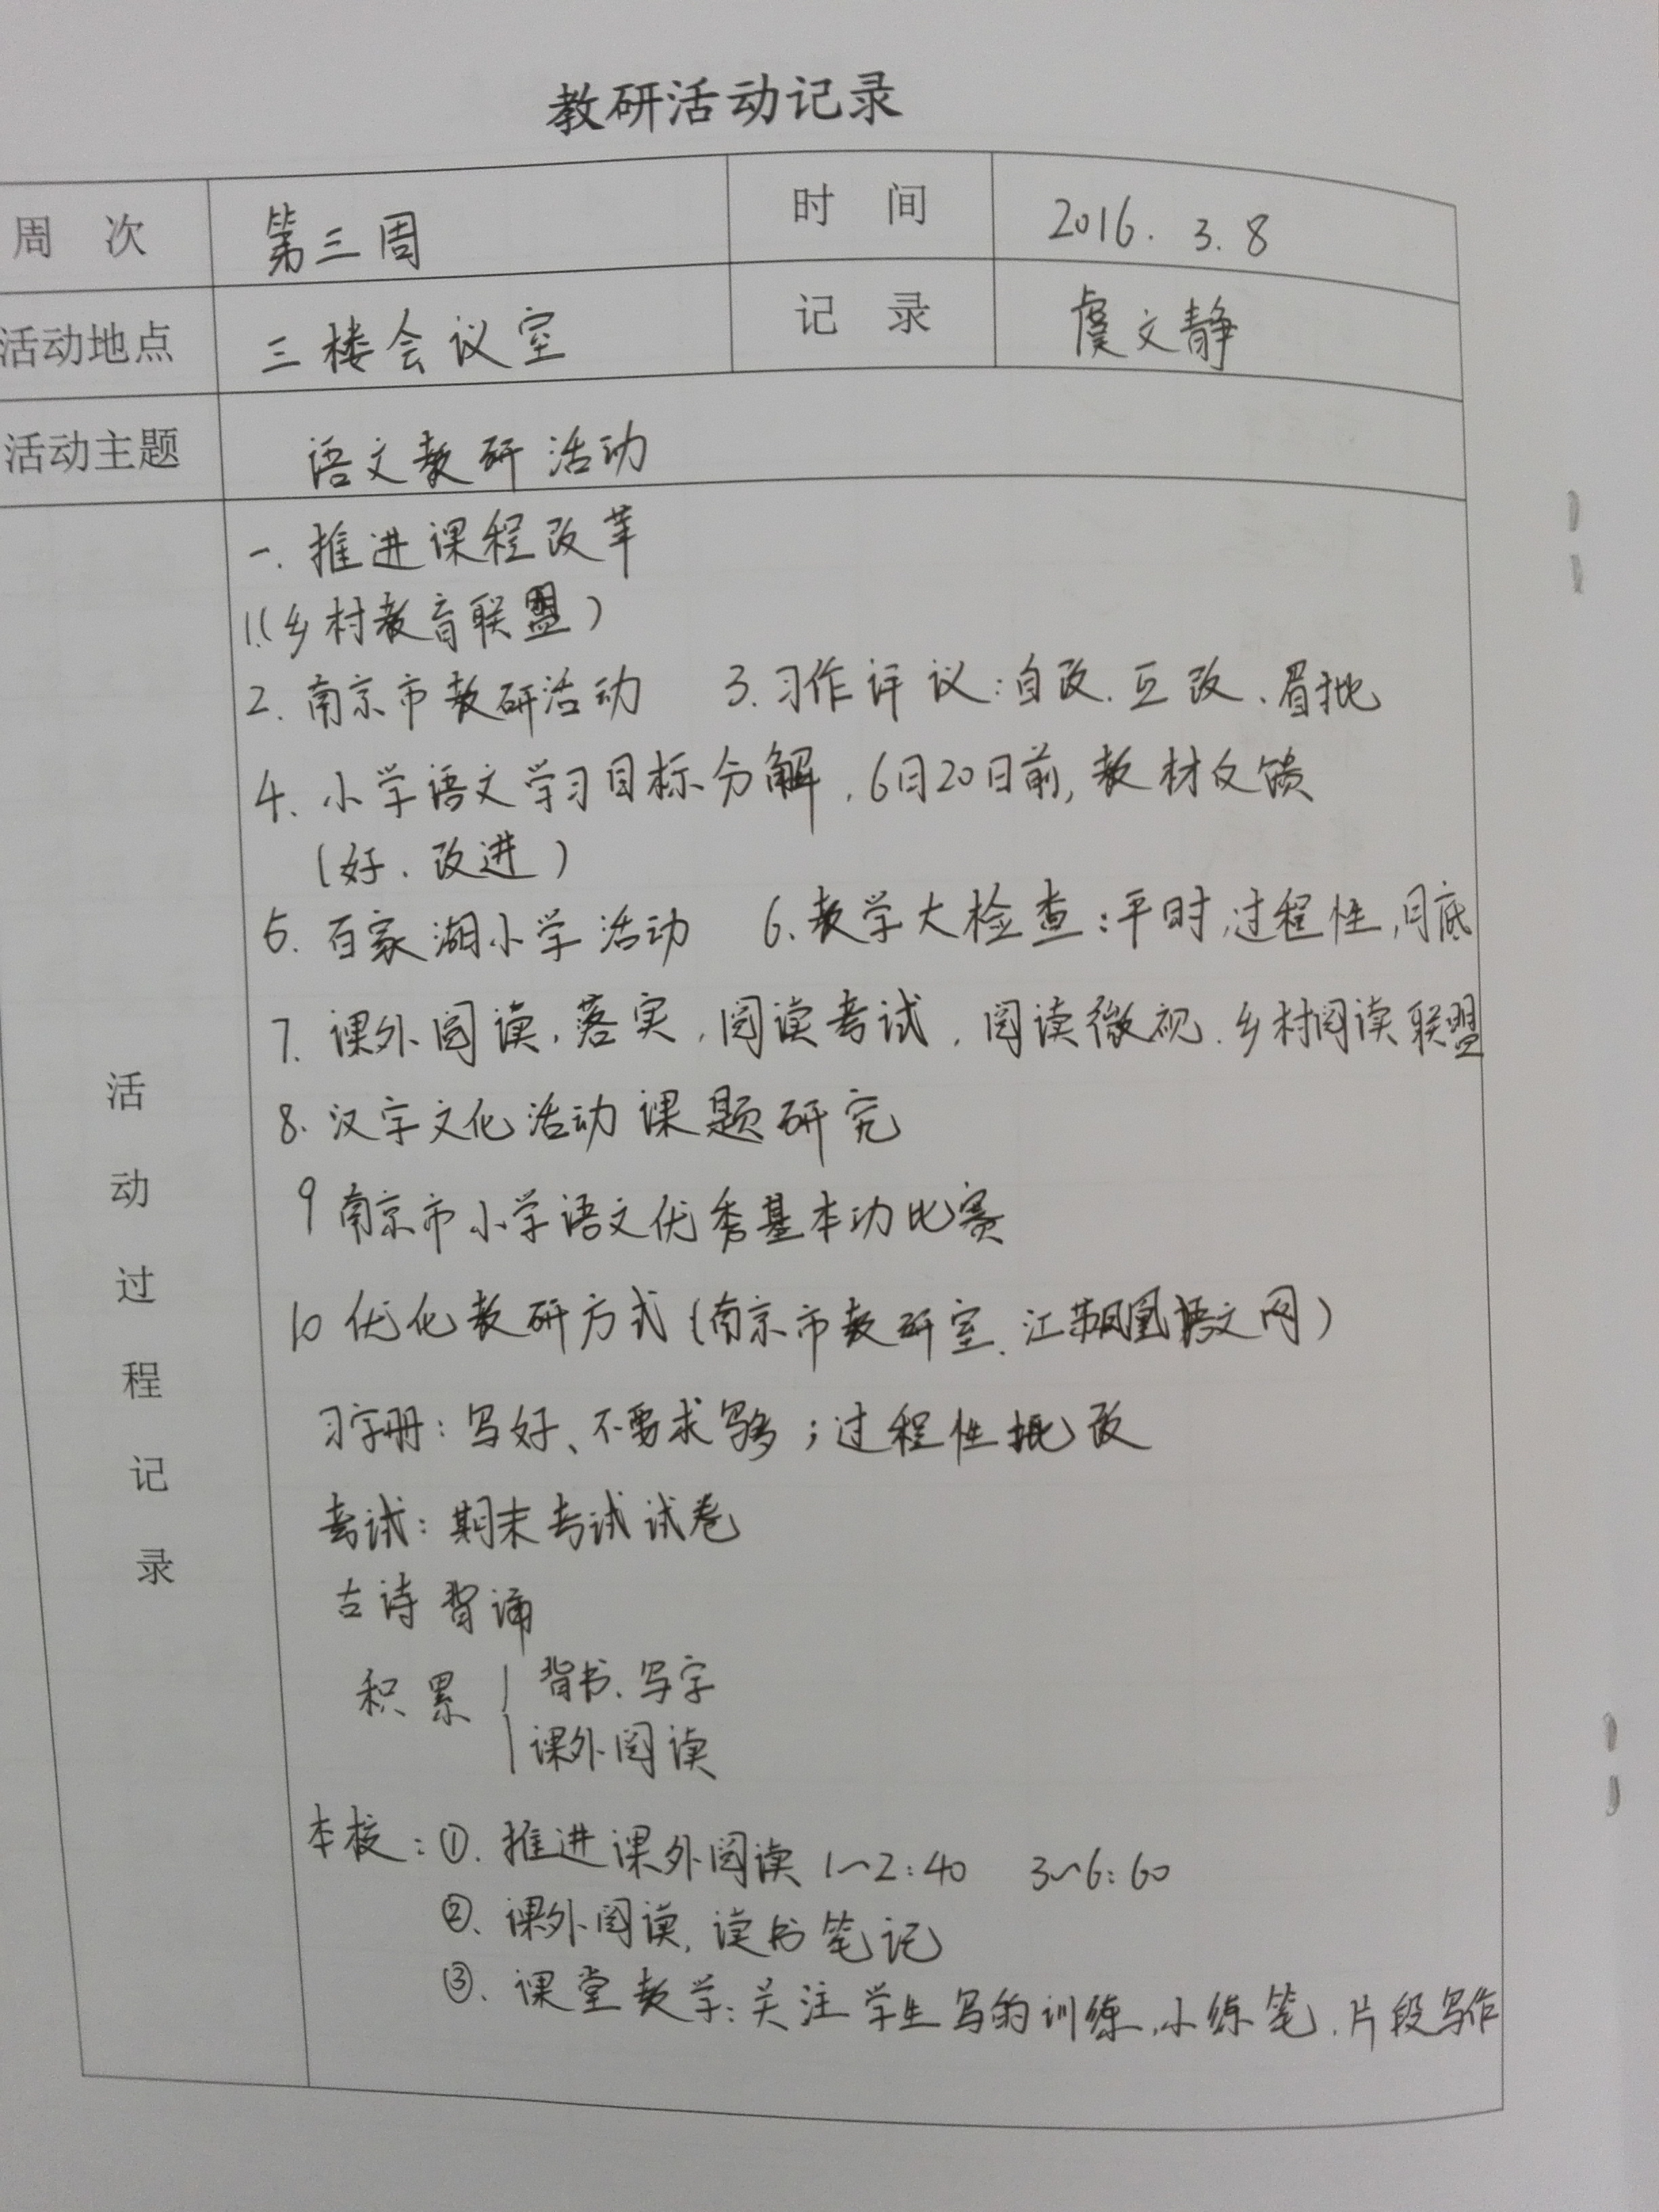 教研活动记录
周次 第三周 时间 2016. 3. 8
活动地点 三楼会议室 记录 虞文静
活动主题 语文教研活动
活动过程记录
一. 推进课程改革
1.(乡村教育联盟)
2. 南京市教研活动 3. 习作评议:自改.互改、眉批
4. 小学语文学习目标分解.6月20日前,教材反馈
(好.改进)
5. 百家湖小学活动 6. 教学大检查:平时,过程性,月底
7. 课外阅读.落实.阅读考试.阅读微视.乡村阅读联盟
8. 汉字文化活动课题研究
9 南京市小学语文优秀基本功比赛
10 优化教研方式(南京市教研室.江苏凤凰语文网)
习字册:写好、不要求写多;过程性批改
考试:期末考试试卷
古诗背诵
积累 背书.写字
课外阅读
本校:①. 推进课外阅读 1~2:40 3~6:60
②. 课外阅读,读书笔记
③. 课堂教学:关注学生写的训练.小练笔.片段写作